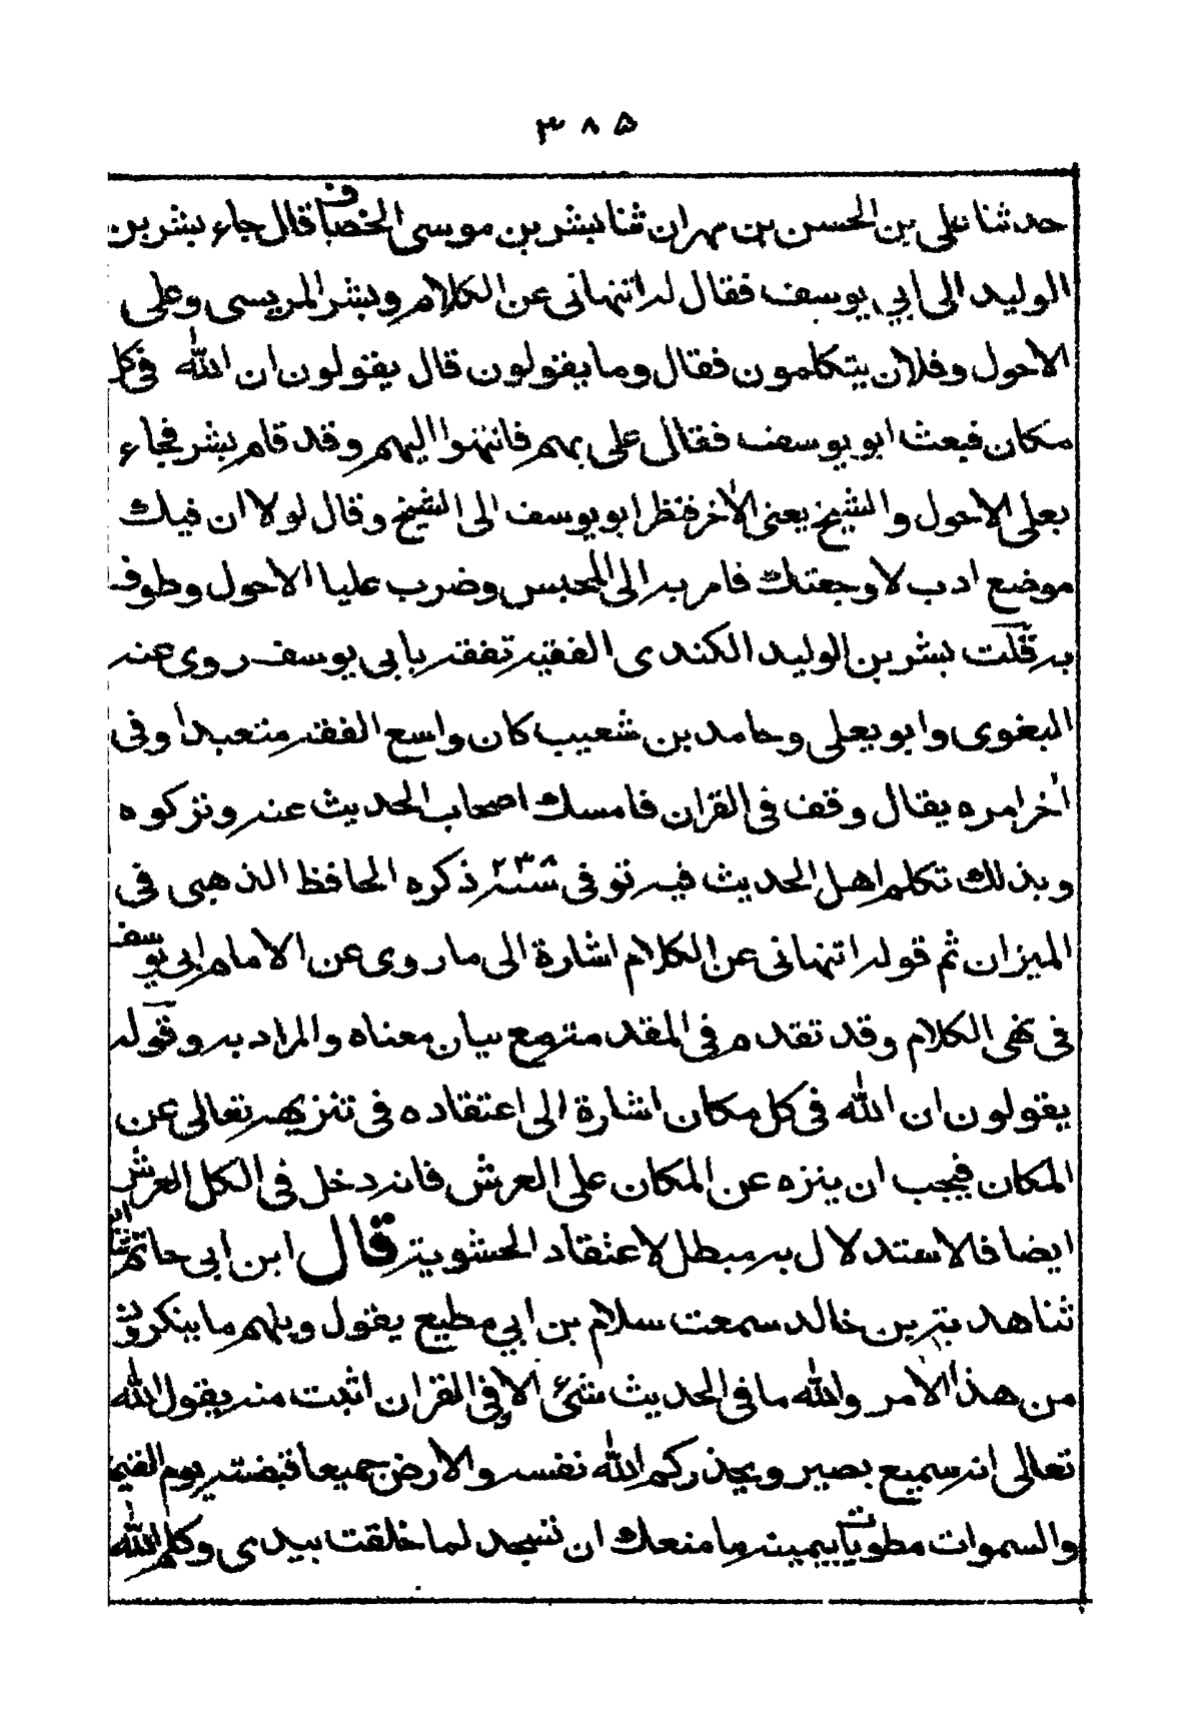 ۳۸۵
حدثنا على بن الحسن بن مهران ثنا بشر بن موسى الخصاف قال جاء بشر بن
الوليد الى ابي يوسف فقال له اتنهانى عن الكلام وبشر المريسى وعلى
الاحول وفلان يتكلمون فقال وما يقولون قال يقولون ان الله فى كل
مكان فبعث ابو يوسف فقال على بهم فانتهوا اليهم وقد قام بشر فجاء
بعلى الاحول والشيخ يعنى الأخر فنظر ابو يوسف الى الشيخ وقال لو لا ان فيك
موضع ادب لاوجعتك فامر به الى المحبس وضرب عليا الاحول وطوف
به قلت بشر بن الوليد الكندى الفقيه تفقه بابى يوسف روى عنه
البغوى وابو يعلى وحامد بن شعيب كان واسع الفقه متعبدا وفى
أخر امره يقال وقف فى القران فامسك اصحاب الحديث عنه وتركوه
وبذلك تكلم اهل الحديث فيه توفى سنة ۲۳۸ ذكره الحافظ الذهبى فى
الميزان ثم قوله اتنهانى عن الكلام اشارة الى ما روى عن الامام ابى يوسف
فى نهى الكلام وقد تقدم فى المقدمة مع بيان معناه والمراد به وقوله
يقولون ان الله فى كل مكان اشارة الى اعتقاده فى تنزيهه تعالى عن
المكان فيجب ان ينزه عن المكان على العرش فانه دخل فى الكل العرش
ايضا فالاستدلال به مبطل لاعتقاد الحشوية قال ابن ابى حاتم
ثنا هدبة بن خالد سمعت سلام بن ابي مطيع يقول ويلهم ما ينكرون
من هذا الأمر والله ما فى الحديث شئ الا وفى القران اثبت منه يقول الله
تعالى انه سميع بصير ويحذركم الله نفسه والارض جميعا قبضته يوم القيمة
والسموات مطويات بيمينه ما منعك ان تسجد لما خلقت بيدى وكلم الله